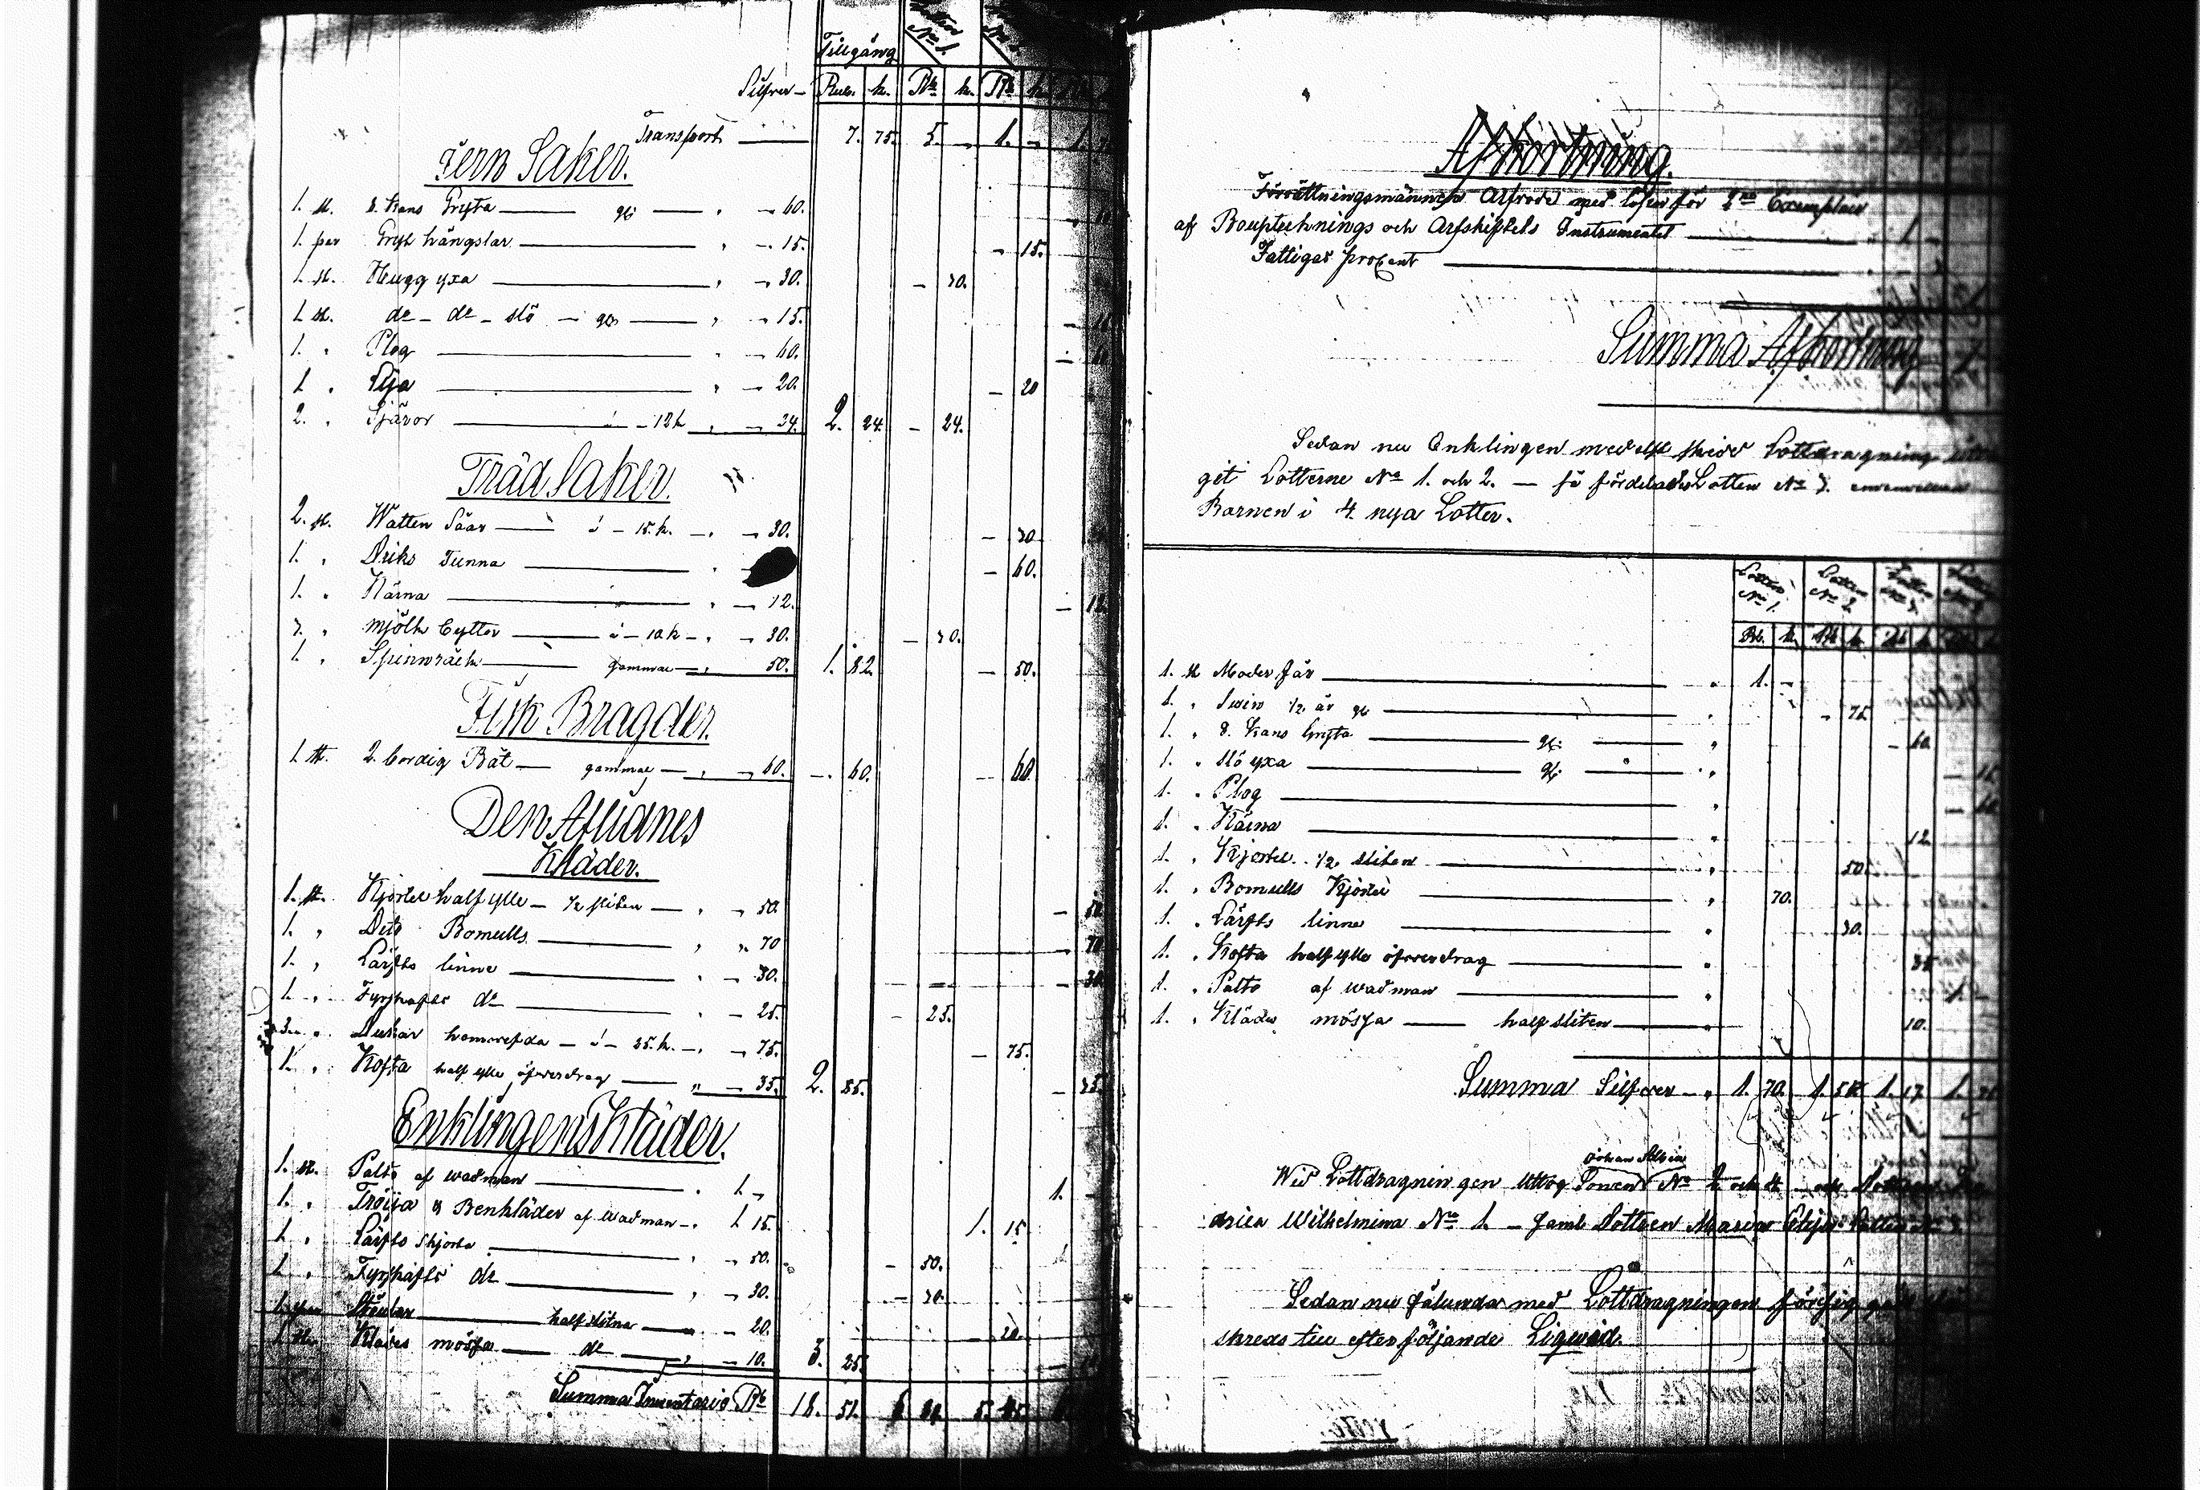 Tillgång Lotten No 1. No 2.
Silfver Rub. k. Rb k. Rb k.
Transport 7. 75. 5. - 1. -
Jern Saker.
1. st. 8. kans Gryta gl: - 60.
1. par Gryt hängslar - 15. - 15.
1. st. Hugg yxa - 30. - 30.
1. st. do - do - slö - gl: - 15.
1. " Plog - 60.
1. " Lija - 20. - 20
2. " Skäror á - 12 k - 24. 2. 24. - 24.
Träd Saker.
2. st. Watten Såar á - 15. k. - 30. - 30
1. " Driks Tunna - 60.
1. " Kärna - 12. - 12.
3. " Mjölk Bytter á - 10 k - - 30. - 30.
1. " Spinnråck gammal 50. 1. 82. - 50.
Fisk Bragder.
1. st. 2. bordig Båt gammal - 60. - 60. - 60.
Den Aflidnes
Kläder.
1. st. Kjortel halfylle - 1/2 sliten - 50.
1. " Dito Bomulls - 70
1. " Lärfts linne - 30. - 30
1. " Fyrskafts do - 25. - 25.
3. " Dukar á - 25. k. - 75. - 75.
1. " Kofta half ylle öfverdrag - 35. 2. 85. - 35.
Enklingens Kläder.
1. st. Palto af wadman 1. - 1. -
1. " Tröija & Benkläder af wadman 1. 15. 1. 15.
1. " Lärfts skjorta - 50. - 50.
1. " Fyrskafts do - 30. - 30.
1. par Stöflar half slitna - 20. - 20.
1. st. Klädes mössa do - 10. 3. 25.
Summa Inventarie Rb 18. 51.
Afkortning.
Förrättningsmännen Arfvode med lösen för 2ne Exemplar
af Bouptecknings och Arfskiftets Instrumentet 1 -
Fattigas procent
Summa Afkortning
Sedan nu Enklingen medelst skedd Lottdragning
git Lotterne No 1. och 2. - så fördelades Lotten No 3. emellan
Barnen i 4. nya Lotter.
Lotten No 1. Lotten No 2. Lotten No 3.
Rb. k. Rb k. Rb k.
1. st Moder får 1. -
1. " Swin 1/2 år gl - 75.
1. " 8. kans Gryta gl: - 60.
1. " slö yxa gl: - 15
1. " Plog - 60
1. " Kärna 12.
1. " Kjortel 1/2 sliten 50.
1. " Bomulls Kjortel 70.
1. " Lärfts linne 30.
1. " Kofta half ylle öfverdrag 35
1. " Palto af wadman 1 -
1. " Klädes mössa half sliten 10.
Summa Silfver 1. 70. 1. 55. 1. 17. 1.
Johan Albin
Wid Lottdragningen uttog Sonen No 2 och 4 och Dottren
drica Wilhelmina No 1 - samt Dottren Maria Lotten No 3
Sedan nu sålunda med Lottdragningen försig
skreds till efterföljande Liqwid.